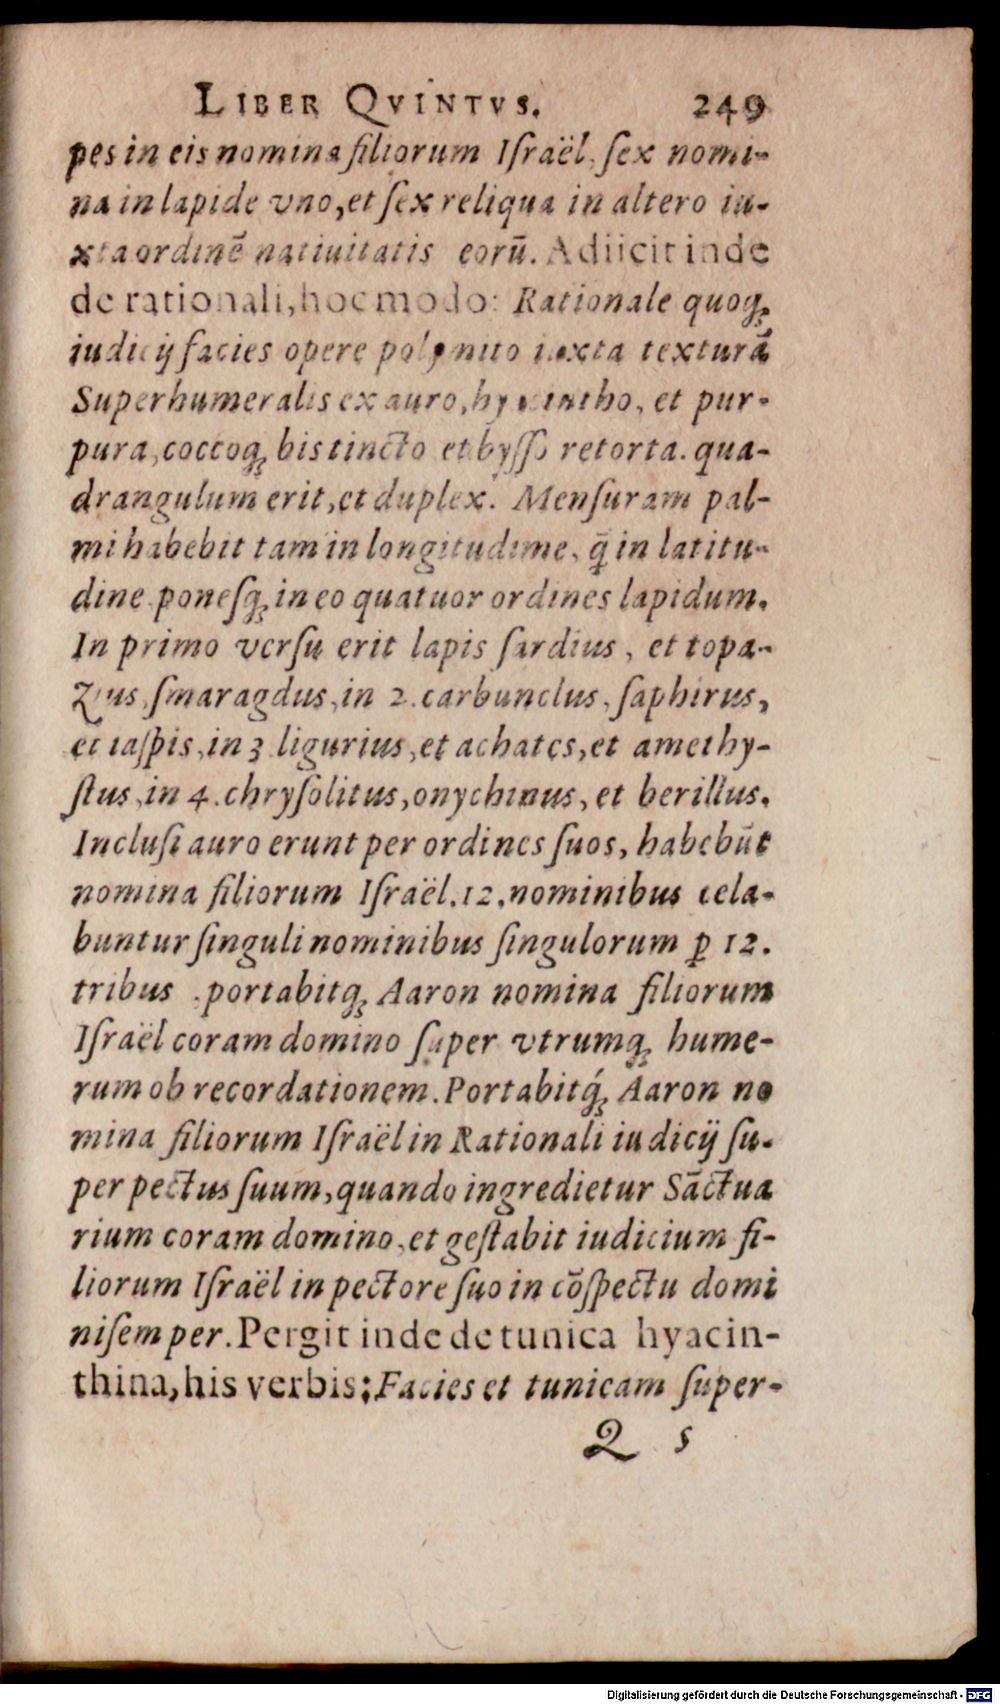 LIBER QVINTVS. 249
pes in eis nomina filiorum Iſraël, ſex nomi-
na in lapide vno, et ſex reliqua in altero iu-
xta ordinē natiuitatis eorū. Adiicit inde
de rationali, hoc modo: Rationale quoq́ꝫ
iudicij facies opere polymito iuxta texturā
Superhumeralis ex auro, hyacintho, et pur-
pura, coccoqꝫ bis tincto et byſſo retorta. qua-
drangulum erit, et duplex. Menſuram pal-
mi habebit tam in longitudine, q̄ in latitu-
dine ponesqꝫ in eo quatuor ordines lapidum.
In primo verſu erit lapis ſardius, et topa-
zius, ſmaragdus, in 2. carbunclus, ſaphirus,
et iaſpis, in 3 ligurius, et achates, et amethy-
ſtus, in 4. chryſolitus, onychinus, et berillus.
Incluſi auro erunt per ordines ſuos, habebūt
nomina filiorum Iſraël. 12. nominibus cela-
buntur ſinguli nominibus ſingulorum ꝑ 12.
tribus . portabitqꝫ Aaron nomina filiorum
Iſraël coram domino ſuper vtrumqꝫ hume-
rum ob recordationem. Portabitq́ꝫ Aaron no
mina filiorum Iſraël in Rationali iudicij ſu-
per pectus ſuum, quando ingredietur Sāctua
rium coram domino, et geſtabit iudicium fi-
liorum Iſraël in pectore ſuo in cōſpectu domi
ni ſemper. Pergit inde de tunica hyacin-
thina, his verbis: Facies et tunicam ſuper-
Q 5
Digitalisierung gefördert durch die Deutsche Forschungsgemeinschaft - DFG